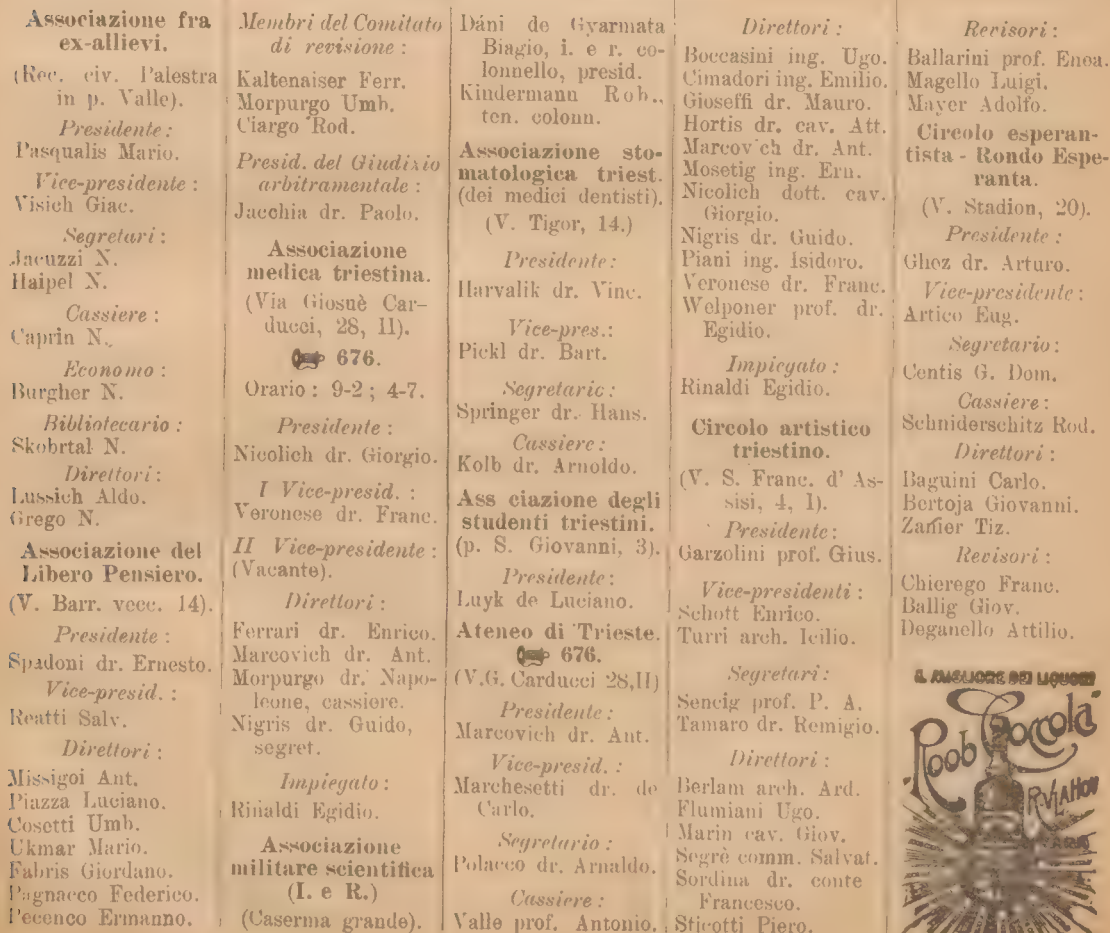 Associazione fra
ex-allievi.
(Rec. civ. Palestra
in p. Valle).
Presidente:
Pasqualis Mario.
Vice-presidente:
Visich Giac.
Segretari:
Jacuzzi N.
Haipel N.
Cassiere:
Caprin N.
Economo:
Burgher N.
Bibliotecario:
Skobrtal N.
Direttori:
Lussich Aldo.
Grego N.
Associazione del
Libero Pensiero.
(V. Barr. vecc. 14).
Presidente:
Spadoni dr. Ernesto.
Vice-presid.:
Reatti Salv.
Direttori:
Missigoi Ant.
Piazza Luciano.
Cosetti Umb.
Ukmar Mario.
Fabris Giordano.
Pagnacco Federico.
Pecenco Ermanno.
Membri del Comitato
di revisione:
Kaltenaiser Ferr.
Morpurgo Umb.
Ciargo Rod.
Presid. del Giudizio
arbitramentale:
Jacchia dr. Paolo.
Associazione
medica triestina.
(Via Giosuè Car-
ducci, 28, II).
676.
Orario: 9-2; 4-7.
Presidente:
Nicolich dr. Giorgio.
I Vice-presid.:
Veronese dr. Franc.
II Vice-presidente:
(Vacante).
Direttori:
Ferrari dr. Enrico.
Marcovich dr. Ant.
Morpurgo dr. Napo-
leone, cassiere.
Nigris dr. Guido,
segret.
Impiegato:
Rinaldi Egidio.
Associazione
militare scientifica
(I. e R.)
(Caserma grande).
Dáni de Gyarmata
Biagio, i. e r. co-
lonnello, presid.
Kindermann Rob.,
ten. colonn.
Associazione sto-
matologica triest.
(dei medici dentisti).
(V. Tigor, 14.)
Presidente:
Harvalik dr. Vinc.
Vice-pres.:
Pickl dr. Bart.
Segretario:
Springer dr. Hans.
Cassiere:
Kolb dr. Arnoldo.
Ass ciazione degli
studenti triestini.
(p. S. Giovanni, 3).
Presidente:
Luyk de Luciano.
Ateneo di Trieste.
676.
(V.G. Carducci 28,II)
Presidente:
Marcovich dr. Ant.
Vice-presid.:
Marchesetti dr. de
Carlo.
Segretario:
Polacco dr. Arnaldo.
Cassiere:
Valle prof. Antonio.
Direttori:
Boccasini ing. Ugo.
Cimadori ing. Emilio.
Gioseffi dr. Mauro.
Hortis dr. cav. Att.
Marcov ch dr. Ant.
Mosetig ing. Ern.
Nicolich dott. cav.
Giorgio.
Nigris dr. Guido.
Piani ing. Isidoro.
Veronese dr. Franc.
Welponer prof. dr.
Egidio.
Impiegato:
Rinaldi Egidio.
Circolo artistico
triestino.
(V. S. Franc. d' As-
sisi, 4, I).
Presidente:
Garzolini prof. Gius.
Vice-presidenti:
Schott Enrico.
Turri arch. Icilio.
Segretari:
Sencig prof. P. A.
Tamaro dr. Remigio.
Direttori:
Berlam arch. Ard.
Flumiani Ugo.
Marin cav. Giov.
Segrè comm. Salvat.
Sordina dr. conte
Francesco.
Sticotti Piero.
Revisori:
Ballarini prof. Enea.
Magello Luigi.
Mayer Adolfo.
Circolo esperan-
tista - Rondo Espe-
ranta.
(V. Stadion, 20).
Presidente:
Ghez dr. Arturo.
Vice-presidente:
Artico Eug.
Segretario:
Centis G. Dom.
Cassiere:
Schniderschitz Rod.
Direttori:
Baguini Carlo.
Bertoja Giovanni.
Zanier Tiz.
Revisori:
Chierego Franc.
Ballig Giov.
Deganello Attilio.
IL MIGLIORE DEI LIQUORI
Roob Coccola
R. VLAHOV